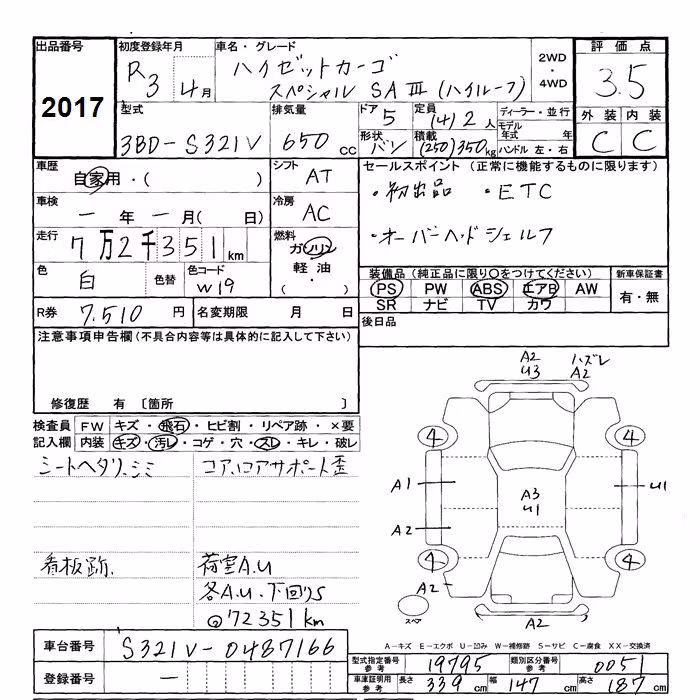 出品番号
2017
初度登録年月
R3 4月
車名・グレード
ハイゼットカーゴ
スペシャル SAⅢ (ハイルーフ)
2WD
・
4WD
評価点
3.5
外装 内装
C C
型式
3BD-S321V
排気量
650 cc
ドア
5
形状
バン
定員
(4) 2人
積載
(250) 350kg
ディーラー・並行
モデル年式 年
ハンドル 左・右
車歴
自家用・( )
シフト
AT
車検
一年 一月( 日)
冷房
AC
走行
7万2千351km
燃料
ガソリン
軽油
・( )
色
白
色替
色コード
W19
R券
7,510 円
名変期限 月 日
セールスポイント (正常に機能するものに限ります)
・初出品 ・ETC
・オーバーヘッドシェルフ
装備品 (純正品に限り○をつけてください)
PS PW ABS エアB AW
SR ナビ TV カワ
新車保証書
有・無
後日品
注意事項申告欄 (不具合内容等は具体的に記入して下さい)
修復歴 有 〔箇所 〕
検査員記入欄
FW キズ・飛石・ヒビ割・リペア跡・×要
内装 キズ・汚レ・コゲ・穴・スレ・キレ・破レ
シートヘタリ、シミ
コア、コアサポート歪
看板跡.
荷室A.U
各A.U.下回りS
@72351km
A2
U3
ハズレ
A2
4
4
A1
A3
U1
U1
A2
4
4
A2
A2
スペア
A-キズ E-エクボ U-凹み W-補修跡 S-サビ C-腐食 XX-交換済
車台番号
S321V-0487166
登録番号
一
型式指定番号 参考
19795
類別区分番号 参考
0051
車庫証明用 参考
長さ 339 cm 幅 147 cm 高さ 187 cm